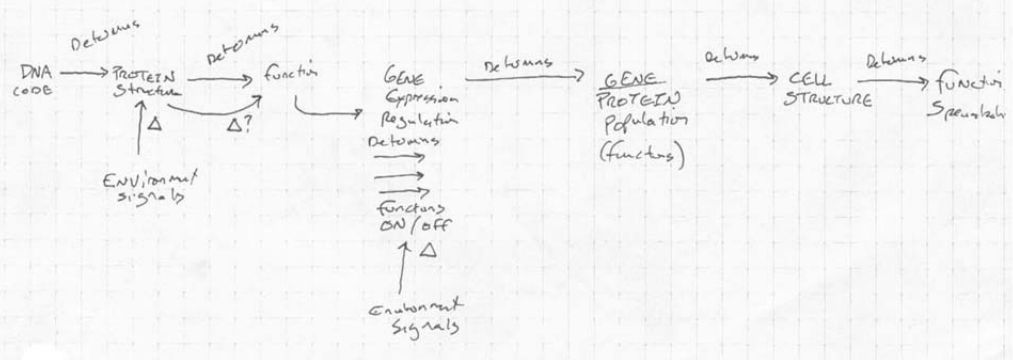 Determines
Determines
DNA
CODE
PROTEIN
Structure
function
Δ
Δ?
ENVironment
signals
GENE
Expression
Regulation
Determines
functions
ON/OFF
Δ
Environment
Signals
Determines
GENE
PROTEIN
Population
(functions)
Determines
CELL
STRUCTURE
Determines
FUNCTION